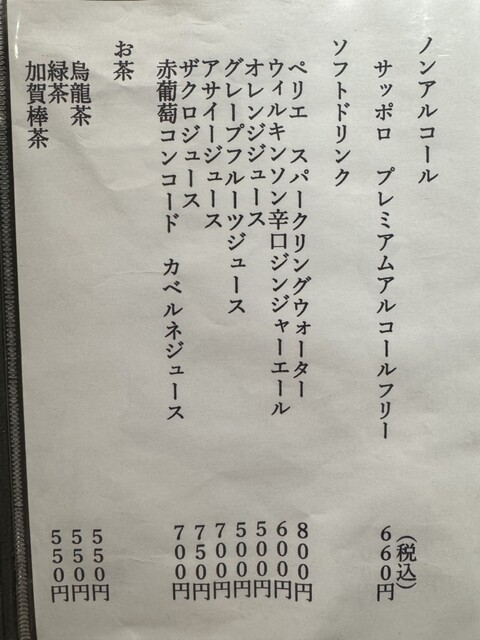 ノンアルコール (税込)
サッポロ プレミアムアルコールフリー 660円
ソフトドリンク
ペリエ スパークリングウォーター 800円
ウィルキンソン辛口ジンジャーエール 600円
オレンジジュース 500円
グレープフルーツジュース 500円
アサイージュース 700円
ザクロジュース 750円
赤葡萄コンコード カベルネジュース 700円
お茶
烏龍茶 550円
緑茶 550円
加賀棒茶 550円